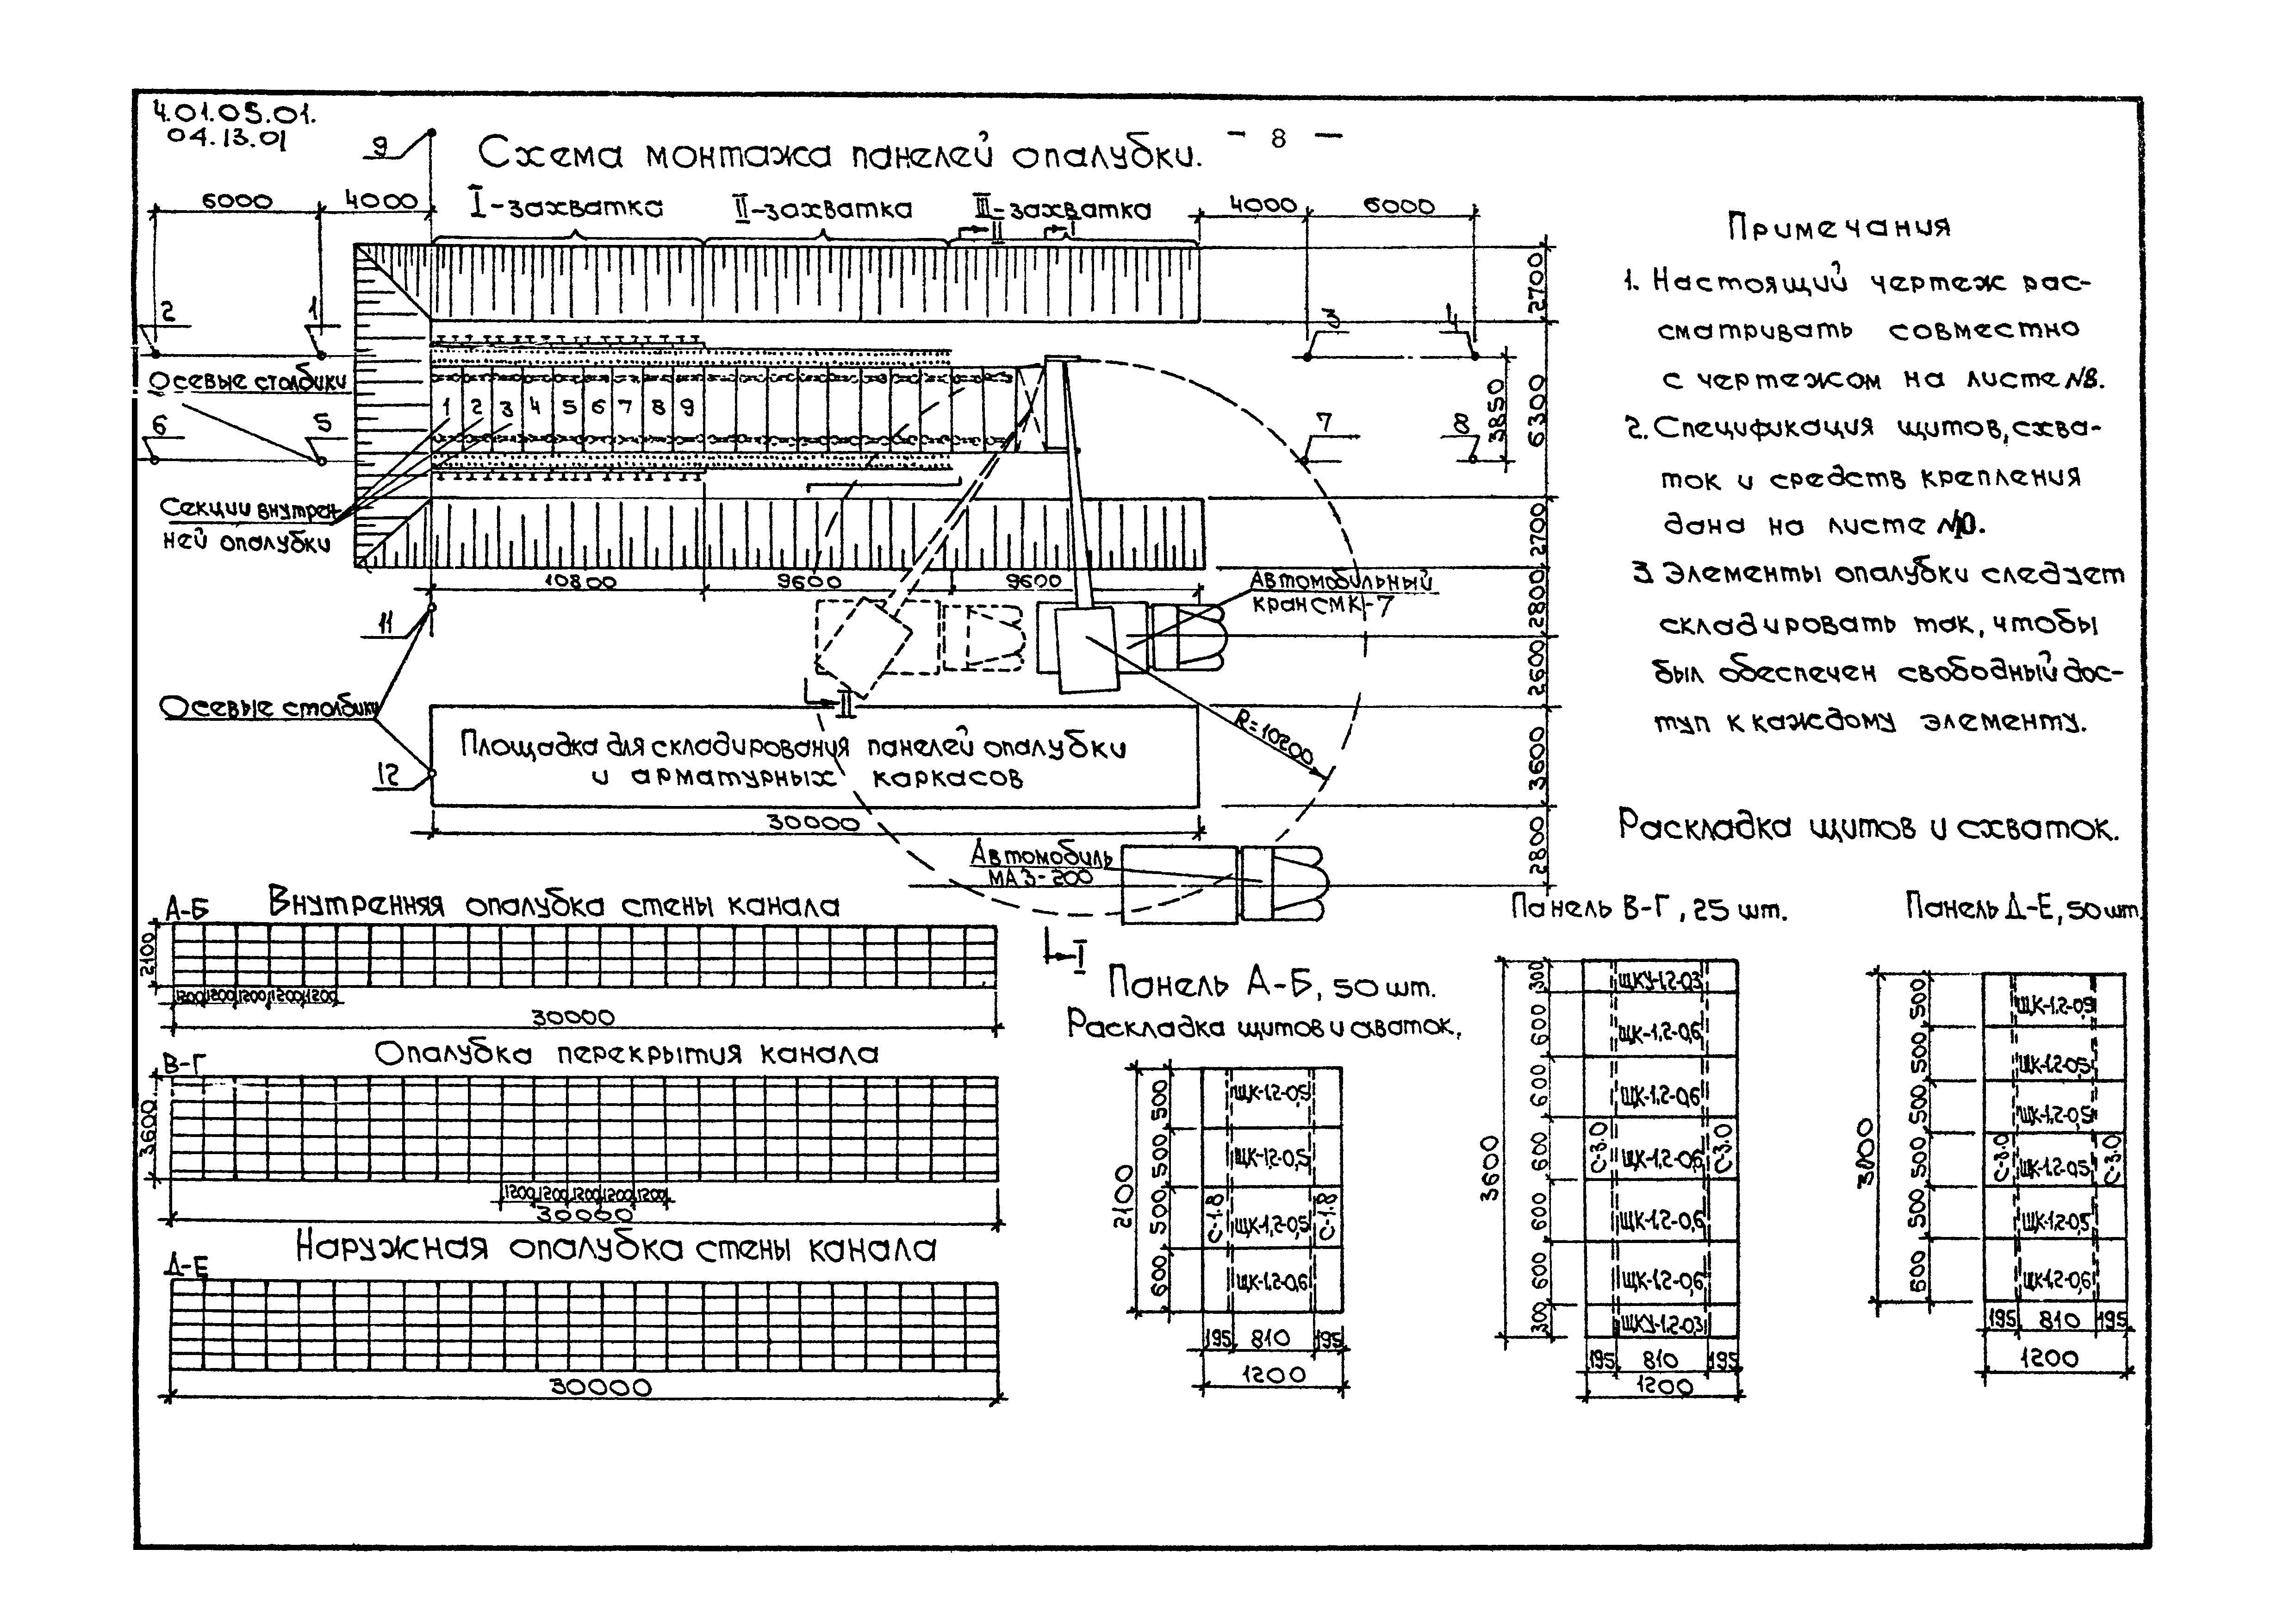 4.01.05.01.
04.13.01
- 8 -
Схема монтажа панелей опалубки.
9
6000
4000
I-захватка
II-захватка
III-захватка
4000
6000
II
I
2
1
3
4
Осевые столбики
6
5
7
8
1 2 3 4 5 6 7 8 9
Секции внутрен
ней опалубки
10800
9600
9600
Автомобильный
кран СМК-7
11
Осевые столбики
12
II
Площадка для складирования панелей опалубки
и арматурных каркасов
R=10200
30000
Автомобиль
МАЗ-200
I
2700
6300
3850
2700
2800
2600
3600
2800
Примечания
1. Настоящий чертеж рас-
сматривать совместно
с чертежом на листе №8.
2. Спецификация щитов, схва-
ток и средств крепления
дана на листе №10.
3 Элементы опалубки следует
складировать так, чтобы
был обеспечен свободный дос-
туп к каждому элементу.
Раскладка щитов и схваток.
А-Б
Внутренняя опалубка стены канала
2100
1200 1200 1200 1200 1200
30000
В-Г
Опалубка перекрытия канала
3600
1200 1200 1200 1200 1200
30000
Д-Е
Наружная опалубка стены канала
30000
Панель А-Б, 50 шт.
Раскладка щитов и схваток,
2100
500
500
500
600
ЩК-1.2-0,5
ЩК-1.2-0,5
ЩК-1,2-0,5
ЩК-1.2-0,6
С-1.8
С-1.8
195
810
195
1200
Панель В-Г, 25 шт.
3600
300
600
600
600
600
600
300
ЩКУ-1.2-0.3
ЩК-1,2-0,6
ЩК-1.2-0,6
ЩК-1,2-0,6
ЩК-1.2-0,6
ЩК-1.2-0,6
ЩКУ-1.2-0.3
С-3.0
С-3.0
195
810
195
1200
Панель Д-Е, 50 шт.
500
500
500
500
500
ЩК-1.2-0,5
ЩК-1.2-0,5
ЩК-1.2-0,5
ЩК-1.2-0,5
ЩК-1.2-0,6
С-3.0
С-3.0
195
810
195
1200